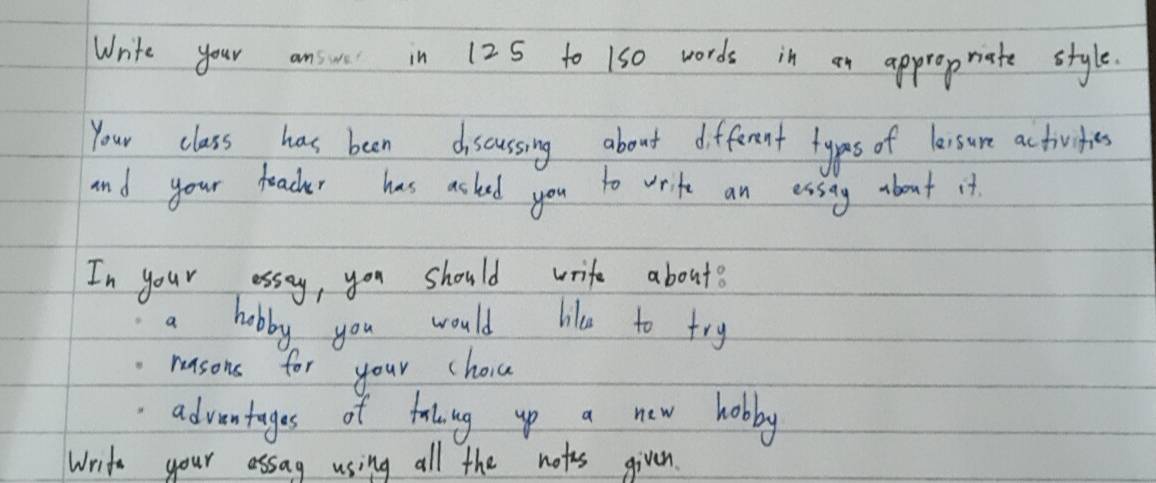 Write your answer in 125 to 150 words in an appropriate style.
Your class has been discussing about different types of leisure activities
and your teacher has asked you to write an essay about it.
In your essay, you should write about:
• a hobby you would like to try
• reasons for your choice
• advantages of taking up a new hobby
Write your essay using all the notes given.